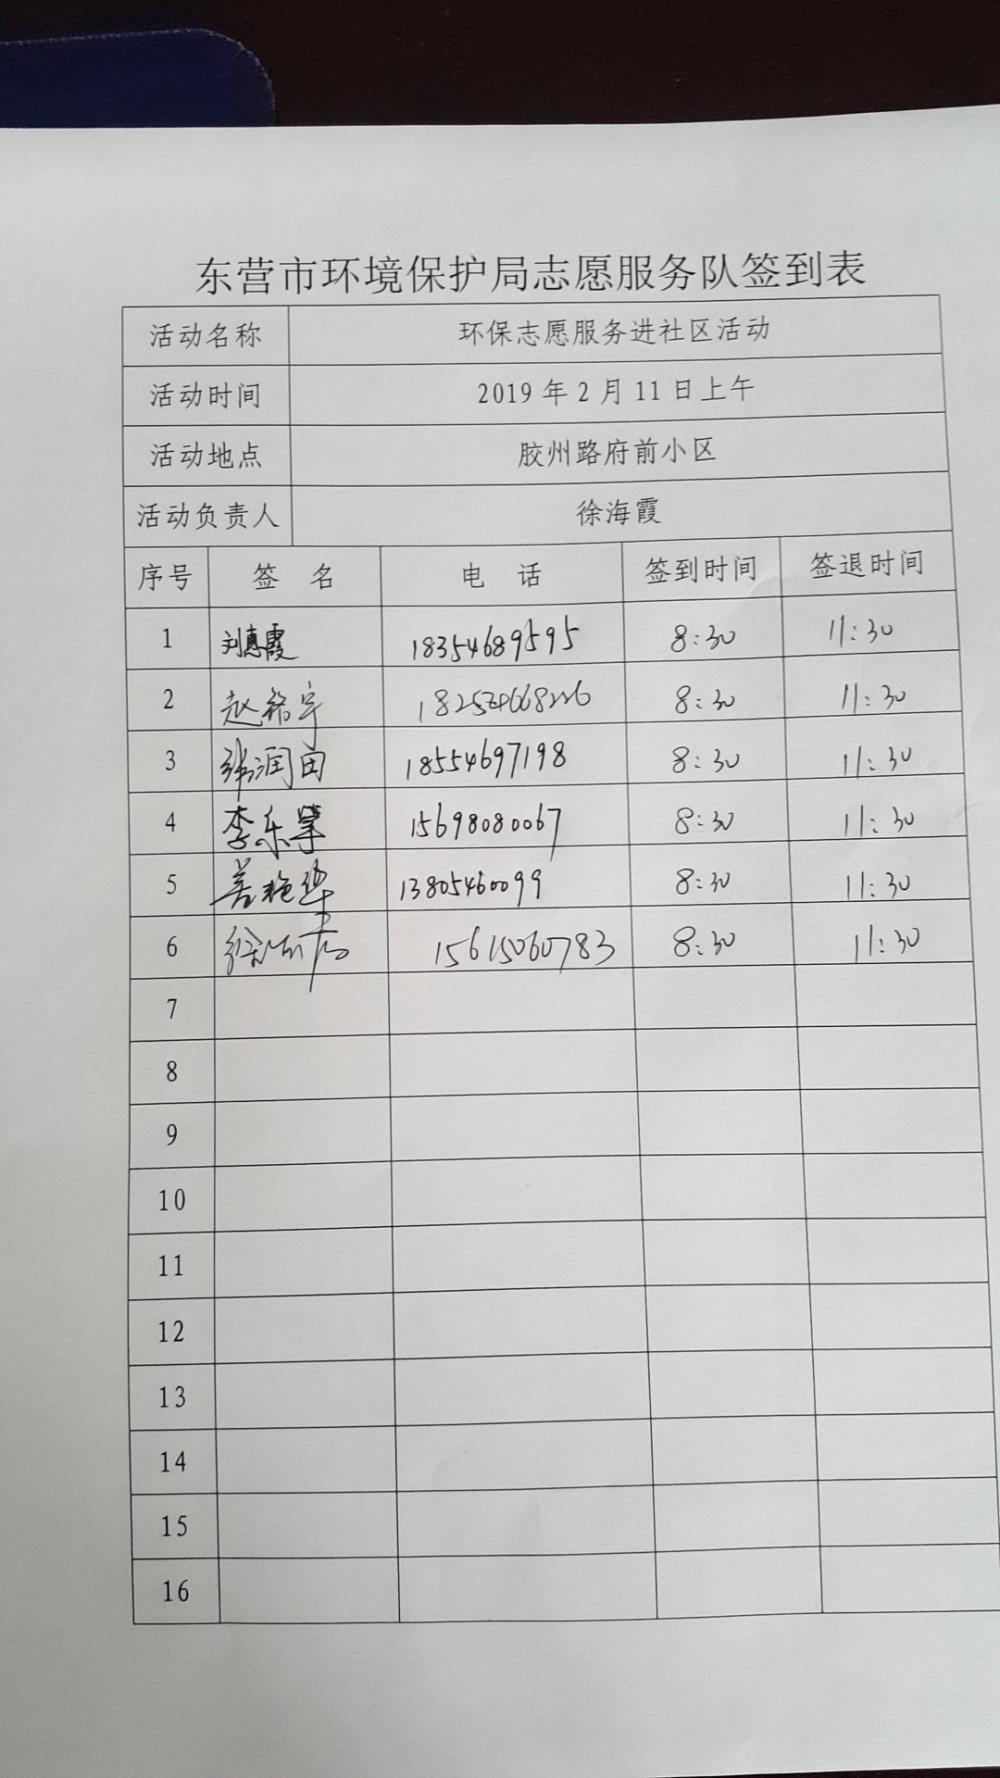 东营市环境保护局志愿服务队签到表
活动名称 环保志愿服务进社区活动
活动时间 2019年2月11日上午
活动地点 胶州路府前小区
活动负责人 徐海霞
序号 签 名 电 话 签到时间 签退时间
1 刘惠霞 18354689595 8:30 11:30
2 赵 宇 8:30 11:30
3 张润 18554697198 8:30 11:30
4 李东 15698080067 8:30 11:30
5 13805460099 8:30 11:30
6 徐 15615060783 8:30 11:30
7
8
9
10
11
12
13
14
15
16